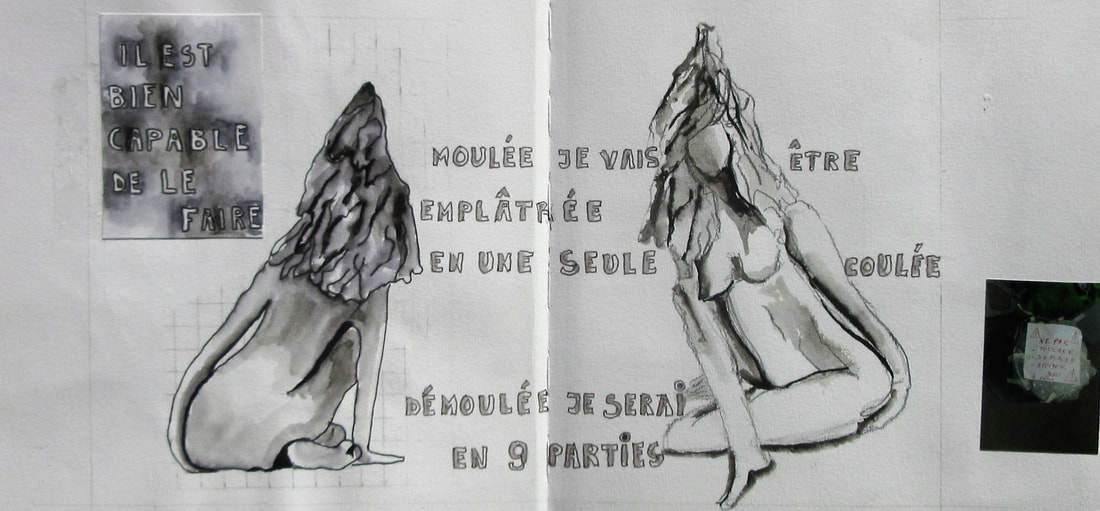 IL EST
BIEN
CAPABLE
DE LE
FAIRE
MOULÉE JE VAIS ÊTRE
EMPLÂTRÉE
EN UNE SEULE COULÉE
DÉMOULÉE JE SERAI
EN 9 PARTIES
NE PAS